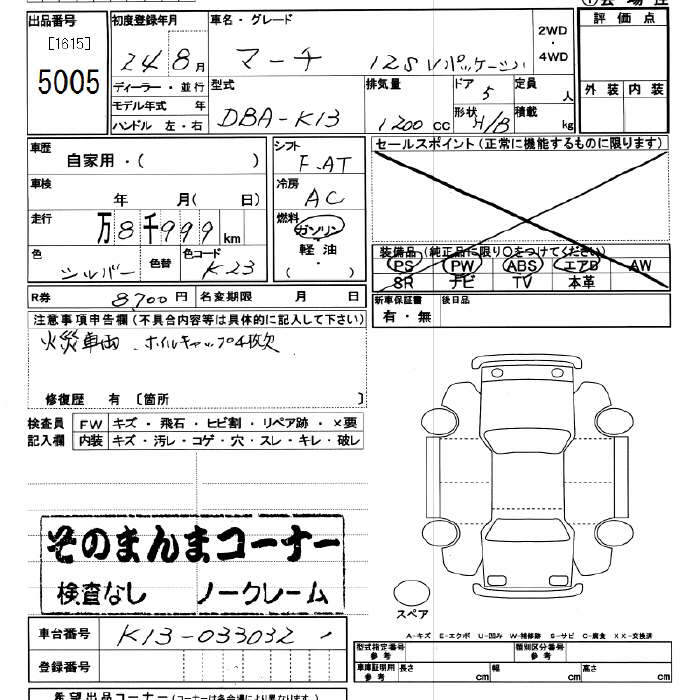 ①会場控
出品番号
[1615]
5005
初度登録年月 車名・グレード
24 8 月 マーチ 12S Vパッケージ
2WD
・
4WD
評価点
外装 内装
ディーラー・並行
モデル年式 年
ハンドル 左・右
型式 排気量 ドア 定員
DBA-K13 1200 cc 5 人
形状 積載
H/B kg
車歴
自家用・( )
車検
年 月( 日)
走行
万8千999km
色 色替 色コード
シルバー K-23
シフト
F.AT
冷房
AC
燃料
ガソリン
軽油
・
( )
セールスポイント(正常に機能するものに限ります)
装備品(純正品に限り〇をつけてください)
PS PW ABS エアB AW
SR ナビ TV 本革
R券 8,700円 名変期限 月 日
新車保証書 後日品
有・無
注意事項申告欄(不具合内容等は具体的に記入して下さい)
火災車両 ホイルキャップ4枚欠
修復歴 有 〔箇所 〕
検査員 FW キズ・飛石・ヒビ割・リペア跡・×要
記入欄 内装 キズ・汚レ・コゲ・穴・スレ・キレ・破レ
そのまんまコーナー
検査なし ノークレーム
スペア
A-キズ E-エクボ U-凹み W-補修跡 S-サビ C-腐食 XX-交換済
車台番号 K13-033032
登録番号
型式指定番号 類別区分番号
参考 参考
車庫証明用 長さ 幅 高さ
参考 cm cm cm
希望出品コーナー(コーナーは各会場により異なります)